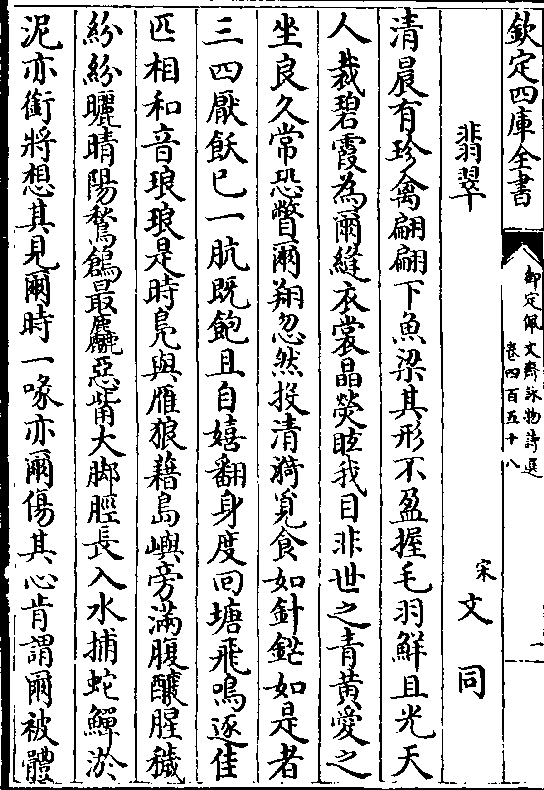 欽定四庫全書
御定佩文齋詠物詩選
卷四百五十八
翡翠
宋文同
清晨有珍禽翩翩下魚梁其形不盈握毛羽鮮且光天
人裁碧霞為爾縫衣裳晶熒眩我目非世之青黃愛之
坐良久常恐瞥爾翔忽然投清漪覓食如針鋩如是者
三四厭飫已一肮既飽且自嬉翻身度回塘飛鳴逐佳
匹相和音琅琅是時鳬與雁狼藉島嶼旁滿腹釀腥穢
紛紛曬晴陽鶖鶬最麤惡觜大脚脛長入水捕蛇鱓淤
泥亦銜將想其見爾時一啄亦爾傷其心肯謂爾被體